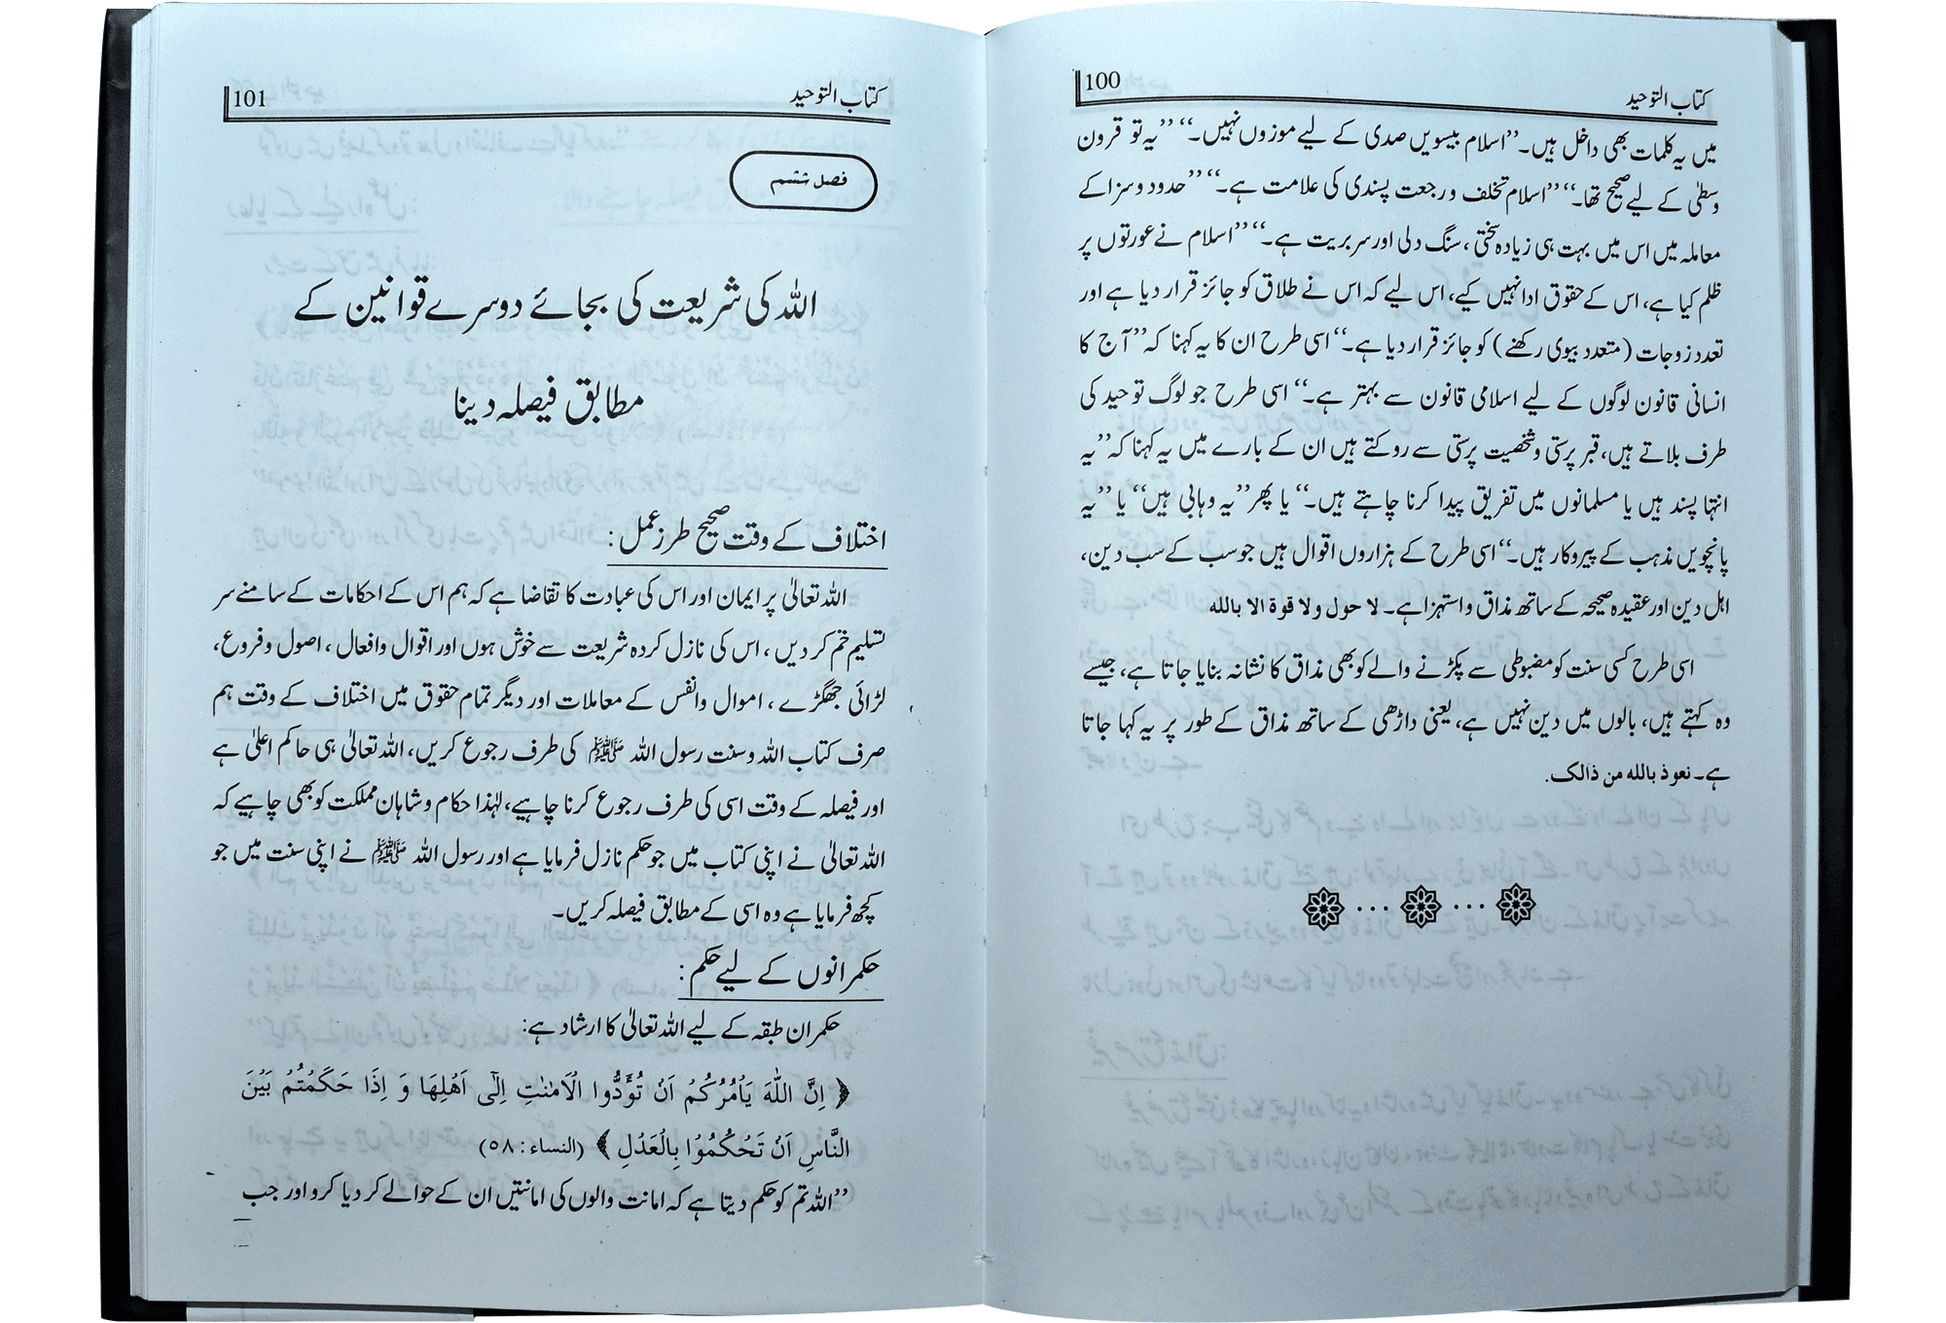 کتاب التوحید 100
میں یہ کلمات بھی داخل ہیں۔ ”اسلام بیسویں صدی کے لیے موزوں نہیں۔“ ”یہ تو قرون
وسطیٰ کے لیے صحیح تھا۔“ ”اسلام تخلف و رجعت پسندی کی علامت ہے۔“ ”حدود و سزا کے
معاملہ میں اس میں بہت ہی زیادہ سختی، سنگ دلی اور سربریت ہے۔“ ”اسلام نے عورتوں پر
ظلم کیا ہے، اس کے حقوق ادا نہیں کیے، اس لیے کہ اس نے طلاق کو جائز قرار دیا ہے اور
تعدد زوجات (متعدد بیوی رکھنے) کو جائز قرار دیا ہے۔“ اسی طرح ان کا یہ کہنا کہ ”آج کا
انسانی قانون لوگوں کے لیے اسلامی قانون سے بہتر ہے۔“ اسی طرح جو لوگ توحید کی
طرف بلاتے ہیں، قبر پرستی و شخصیت پرستی سے روکتے ہیں ان کے بارے میں یہ کہنا کہ ”یہ
انتہا پسند ہیں یا مسلمانوں میں تفریق پیدا کرنا چاہتے ہیں۔“ یا پھر ”یہ وہابی ہیں“ یا ”یہ
پانچویں مذہب کے پیروکار ہیں۔“ اسی طرح کے ہزاروں اقوال ہیں جو سب کے سب دین،
اہل دین اور عقیدہ صحیحہ کے ساتھ مذاق و استہزا ہے۔ لا حول ولا قوة الا بالله
اسی طرح کسی سنت کو مضبوطی سے پکڑنے والے کو بھی مذاق کا نشانہ بنایا جاتا ہے، جیسے
وہ کہتے ہیں، بالوں میں دین نہیں ہے، یعنی داڑھی کے ساتھ مذاق کے طور پر یہ کہا جاتا
ہے۔ نعوذ بالله من ذالک.
کتاب التوحید 101
فصل ششم
اللہ کی شریعت کی بجائے دوسرے قوانین کے
مطابق فیصلہ دینا
اختلاف کے وقت صحیح طرز عمل:
اللہ تعالیٰ پر ایمان اور اس کی عبادت کا تقاضا ہے کہ ہم اس کے احکامات کے سامنے سر
تسلیم خم کر دیں، اس کی نازل کردہ شریعت سے خوش ہوں اور اقوال و افعال، اصول و فروع،
لڑائی جھگڑے، اموال و انفس کے معاملات اور دیگر تمام حقوق میں اختلاف کے وقت ہم
صرف کتاب اللہ و سنت رسول اللہ ﷺ کی طرف رجوع کریں، اللہ تعالیٰ ہی حاکم اعلیٰ ہے
اور فیصلہ کے وقت اسی کی طرف رجوع کرنا چاہیے، لہٰذا حکام و شاہان مملکت کو بھی چاہیے کہ
اللہ تعالیٰ نے اپنی کتاب میں جو حکم نازل فرمایا ہے اور رسول اللہ ﷺ نے اپنی سنت میں جو
کچھ فرمایا ہے وہ اسی کے مطابق فیصلہ کریں۔
حکمرانوں کے لیے حکم:
حکمران طبقہ کے لیے اللہ تعالیٰ کا ارشاد ہے:
﴿ اِنَّ اللّٰهَ يَاْمُرُكُمْ اَنْ تُؤَدُّوا الْاَمٰنٰتِ اِلٰٓى اَهْلِهَا وَ اِذَا حَكَمْتُمْ بَيْنَ
النَّاسِ اَنْ تَحْكُمُوْا بِالْعَدْلِ ﴾ (النساء: ٥٨)
”اللہ تم کو حکم دیتا ہے کہ امانت والوں کی امانتیں ان کے حوالے کر دیا کرو اور جب